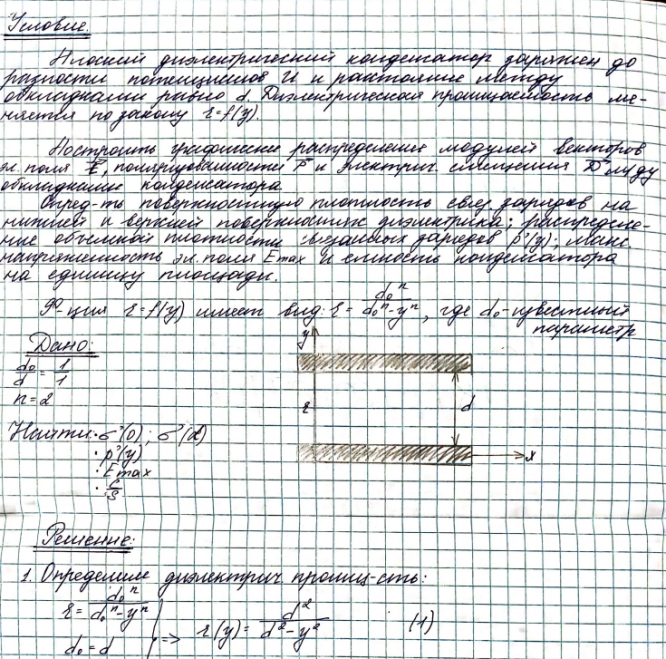 Условие.
Плоский диэлектрический конденсатор заряжен до
разности потенциалов U и расстояние между
обкладками равно d. Диэлектрическая проницаемость ме-
няется по закону ε=f(y).
Построить графически распределения модулей векторов
эл. поля E, поляризованности P и электрич. смещения D между
обкладками конденсатора.
Опред-ть поверхностную плотность связ. зарядов на
нижней и верхней поверхностях диэлектрика; распределе-
ние объемной плотности связанных зарядов ρ'(y); макс.
напряженность эл. поля Emax и емкость конденсатора
на единицу площади.
Ф-ция ε=f(y) имеет вид: ε = d₀ⁿ/(d₀ⁿ-yⁿ), где d₀-известный
параметр
Дано:
d₀/d = 1/1
n=2
Найти: • σ'(0); σ'(d)
• ρ'(y)
• Emax
• C/S
y
ε
d
x
Решение:
1. Определим диэлектрич. прониц-сть:
ε = d₀ⁿ/(d₀ⁿ-yⁿ)
d₀=d
=> ε(y) = d²/(d²-y²) (1)